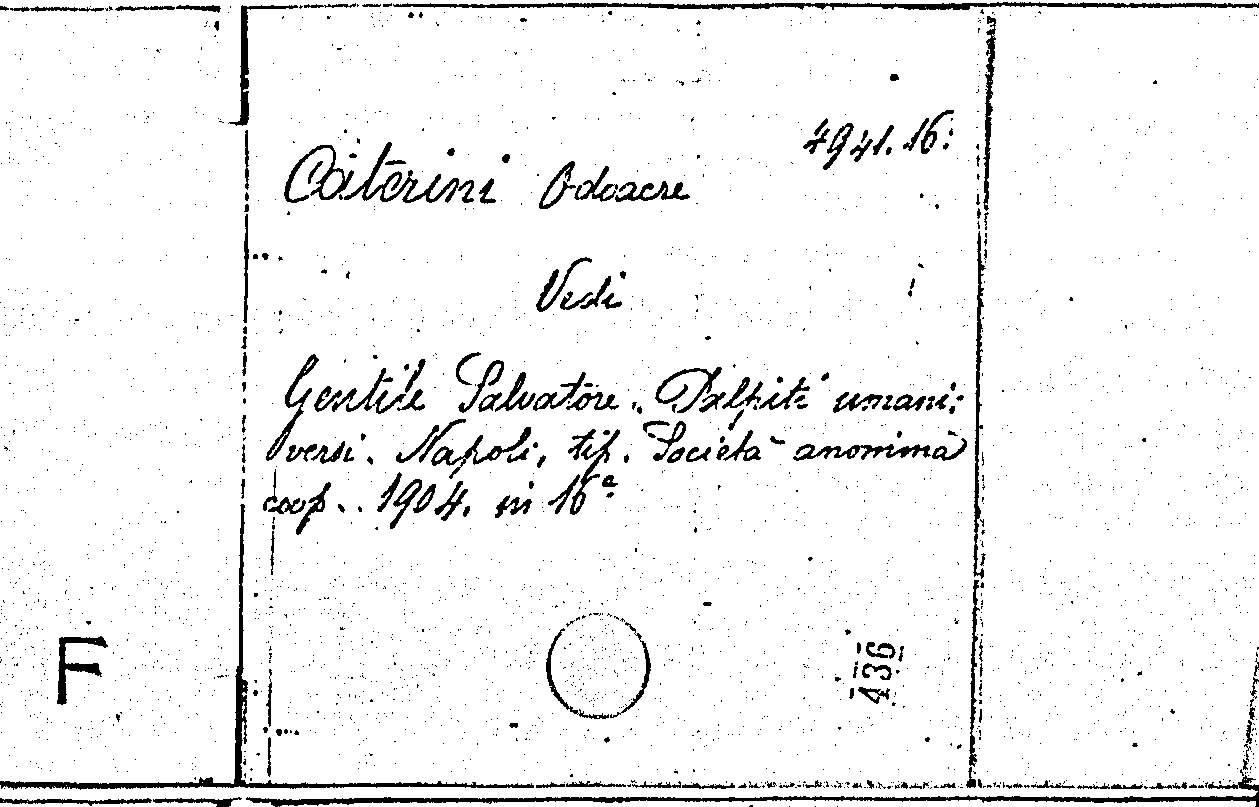 4941.16:
Caterini Odoacre
Vedi
Gentile Salvatore. Palpiti umani:
versi. Napoli, tip. Società anonima
coop.. 1904. in 16°
F
436